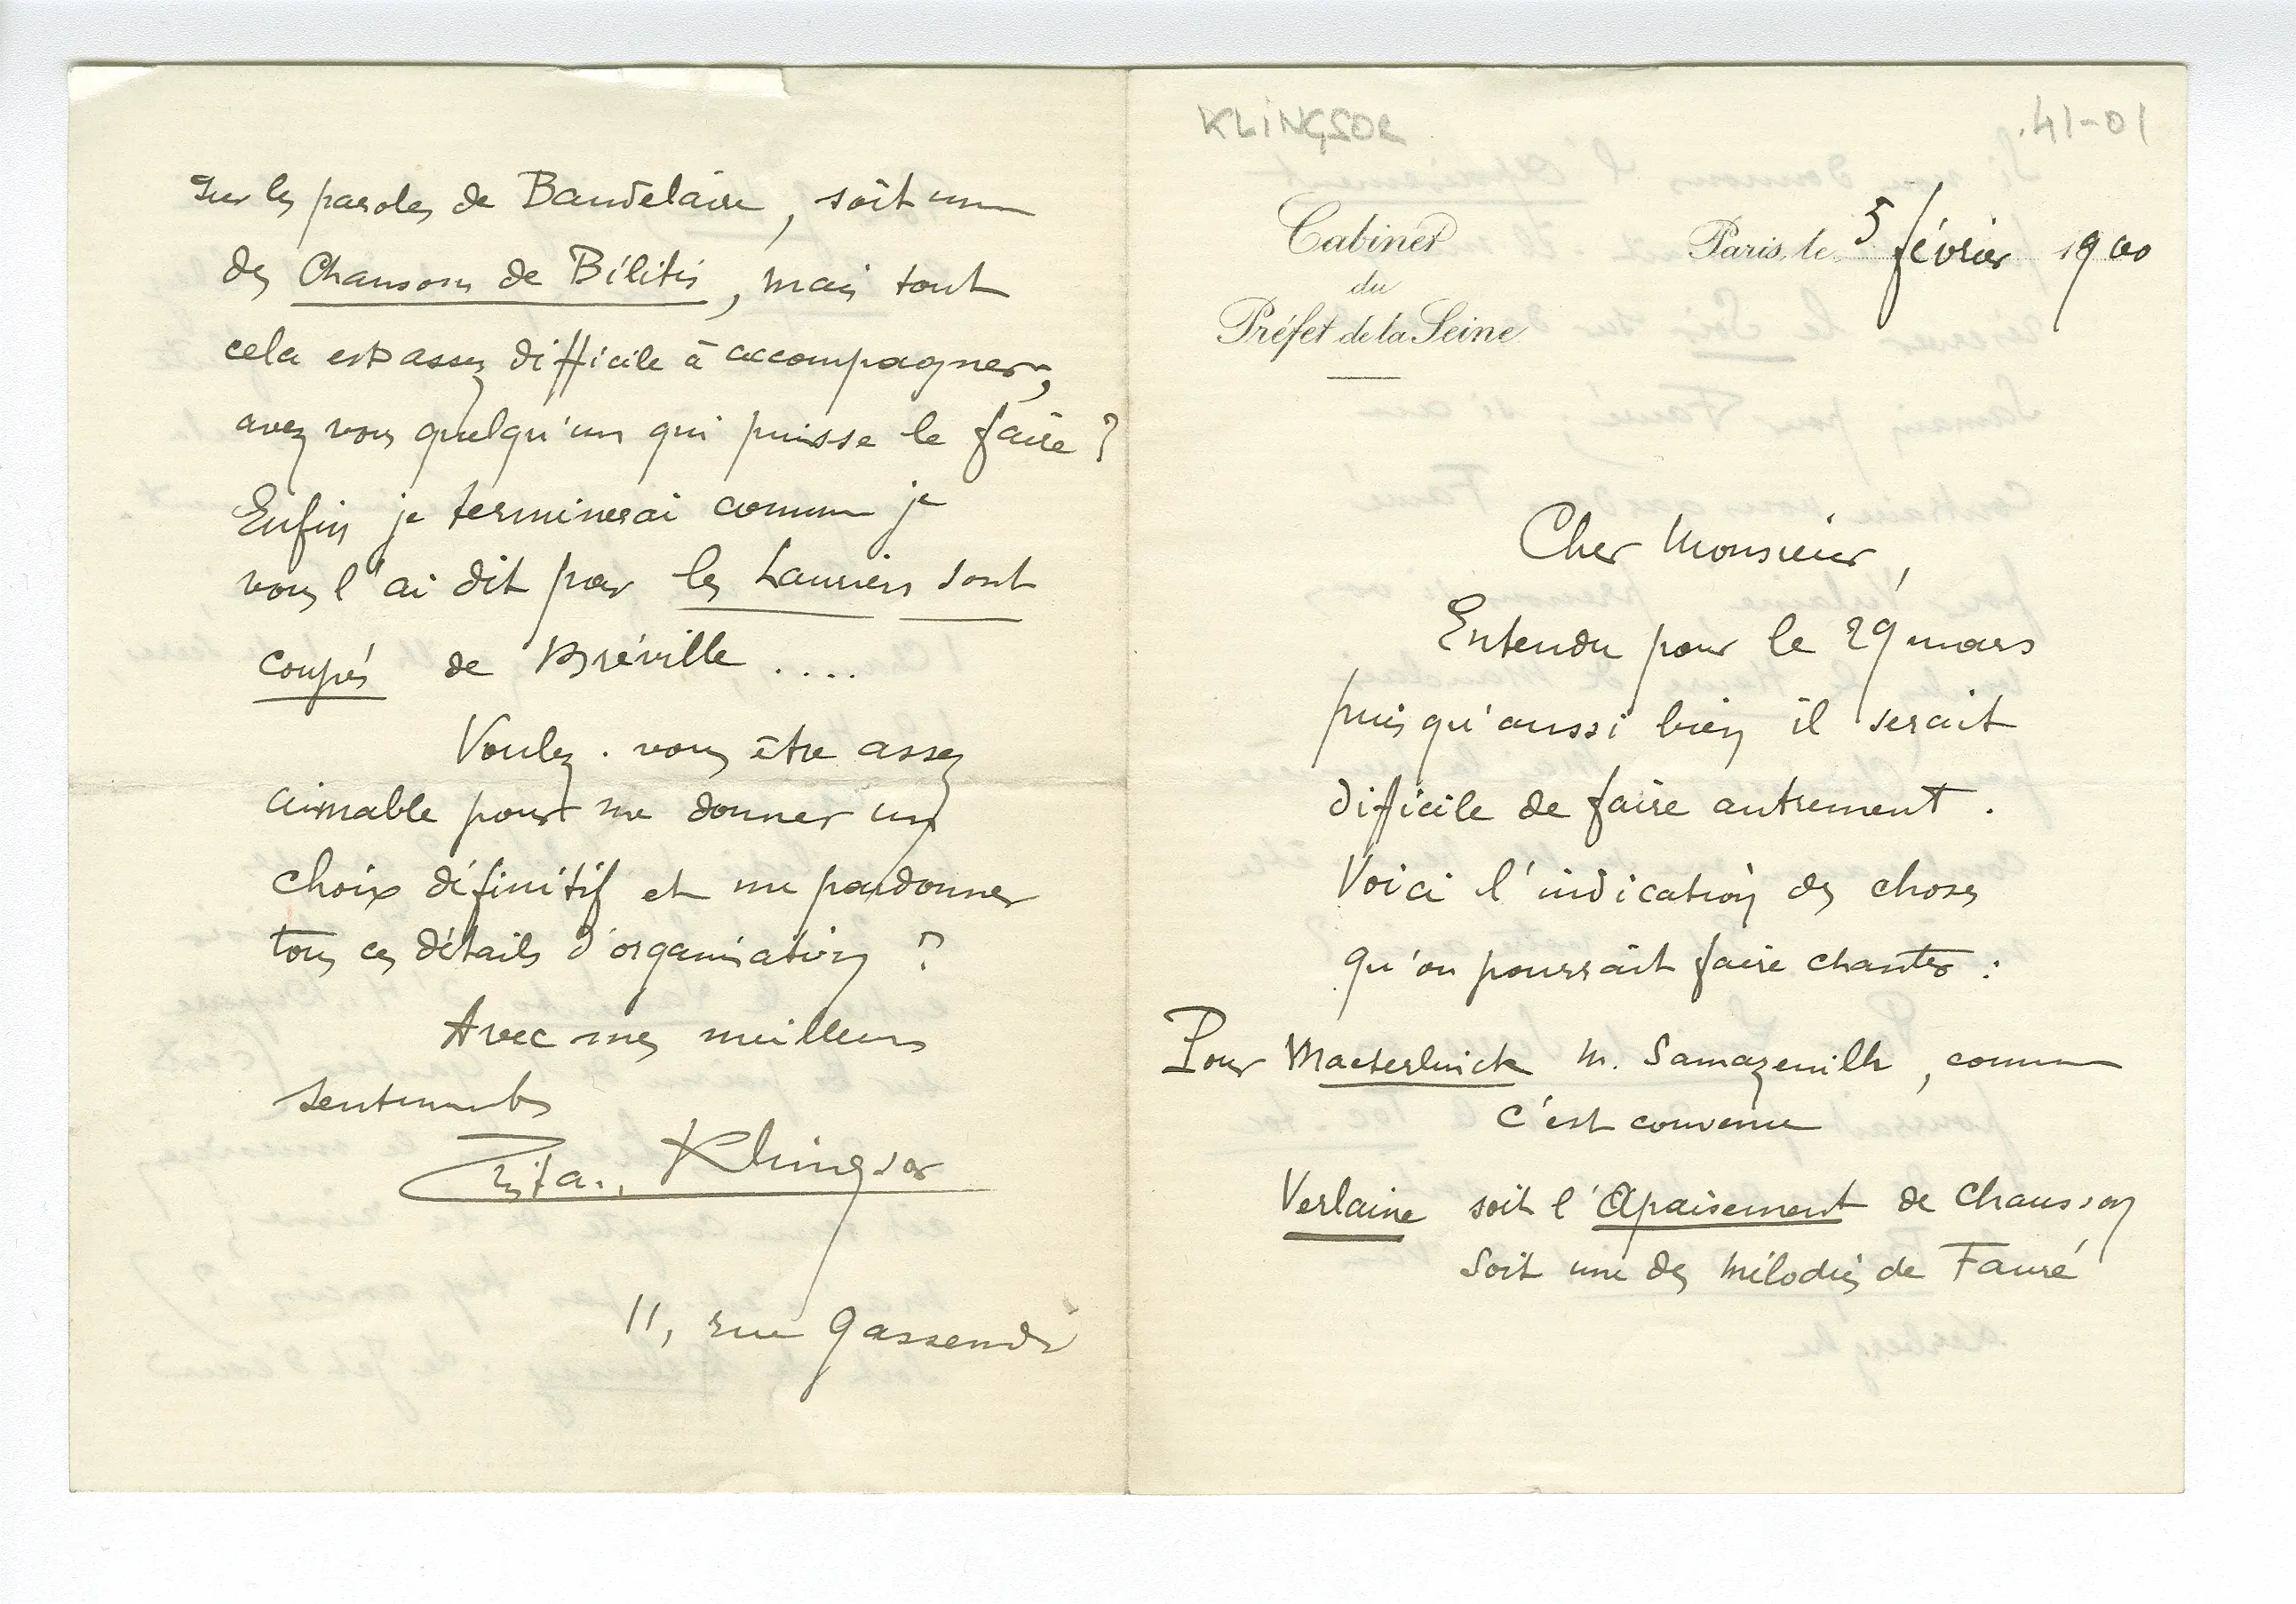 KLINGSOR
41-01
Cabinet
du
Préfet de la Seine
Paris, le 5 février 1900
Cher Monsieur,
Entendu pour le 29 mars
puisqu'aussi bien il serait
difficile de faire autrement.
Voici l'indication des choses
qu'on pourrait faire chanter :
Pour Maeterlinck M. Samazeuilh, comme
c'est convenu
Verlaine soit l'Apaisement de Chausson
soit une des mélodies de Fauré
sur les paroles de Baudelaire, soit une
des Chansons de Bilitis, mais tout
cela est assez difficile à accompagner,
avez vous quelqu'un qui puisse le faire ?
Enfin je terminerai comme je
vous l'ai dit par les Lauriers sont
coupés de Bréville ....
Voulez-vous être assez
aimable pour me donner un
choix définitif et me pardonner
tous ces détails d'organisation ?
Avec mes meilleurs
sentiments
Klingsor
11, rue Gassendi